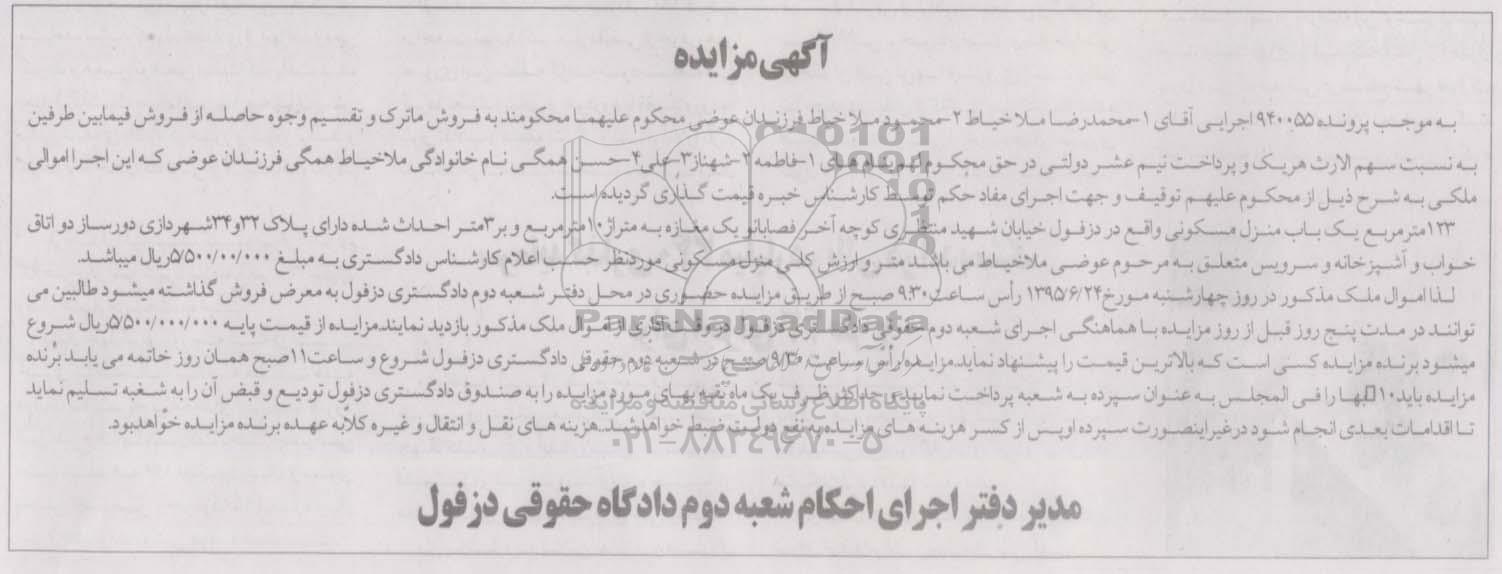 آگهی مزایده
به موجب پرونده ۹۴۰۰۵۵ اجرایی آقای ۱-محمدرضا ملاخیاط ۲-محمود ملاخیاط فرزندان عوضی محکوم علیهما محکومند به فروش ماترک و تقسیم وجوه حاصله از فروش فیمابین طرفین
به نسبت سهم الارث هریک و پرداخت نیم عشر دولتی در حق محکوم لهم بنام های ۱-فاطمه ۲-شهناز۳-علی۴-حسن همگی نام خانوادگی ملاخیاط همگی فرزندان عوضی که این اجرا اموالی
ملکی به شرح ذیل از محکوم علیهم توقیف و جهت اجرای مفاد حکم توسط کارشناس خبره قیمت گذاری گردیده است.
۱۲۳مترمربع یک باب منزل مسکونی واقع در دزفول خیابان شهید منتظری کوچه آخر فصابانو یک مغازه به متراژ۱۰مترمربع و بر۳متر احداث شده دارای پلاک ۳۲و۳۴شهرداری دورساز دو اتاق
خواب و آشپزخانه و سرویس متعلق به مرحوم عوضی ملاخیاط می باشد متر و ارزش کلی منزل مسکونی موردنظر حسب اعلام کارشناس دادگستری به مبلغ ۵/۵۰۰/۰۰/۰۰۰ریال میباشد.
لذا اموال ملک مذکور در روز چهارشنبه مورخ۱۳۹۵/۶/۲۴ رأس ساعت۹:۳۰ صبح از طریق مزایده حضوری در محل دفتر شعبه دوم دادگستری دزفول به معرض فروش گذاشته میشود طالبین می
توانند در مدت پنج روز قبل از روز مزایده با هماهنگی اجرای شعبه دوم حقوقی دادگستری دزفول در وقت اداری از اموال ملک مذکور بازدید نمایند.مزایده از قیمت پایه ۵/۵۰۰/۰۰۰/۰۰۰ریال شروع
میشود برنده مزایده کسی است که بالاترین قیمت را پیشنهاد نماید.مزایده رأس ساعت ۹/۳۰ صبح در شعبه دوم حقوقی دادگستری دزفول شروع و ساعت۱۱صبح همان روز خاتمه می یابد برنده
مزایده باید۱۰٪بها را فی المجلس به عنوان سپرده به شعبه پرداخت نماید و حداکثر ظرف یک ماه بقیه بهای مورد مزایده را به صندوق دادگستری دزفول تودیع و قبض آن را به شعبه تسلیم نماید
تا اقدامات بعدی انجام شود درغیراینصورت سپرده اوپس از کسر هزینه های مزایده به نفع دولت ضبط خواهد شد.هزینه های نقل و انتقال و غیره کلاً به عهده برنده مزایده خواهدبود.
مدیر دفتر اجرای احکام شعبه دوم دادگاه حقوقی دزفول
ParsNamadData
پایگاه اطلاع رسانی مناقصه و مزایده
۰۲۱-۸۸۳۴۹۶۷۰-۵